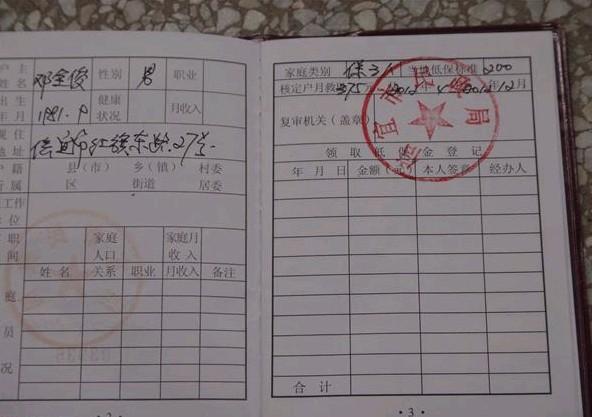 户主 邓全俊 性别 男 职业
姓名
出生 1981.9 健康 月收入
年月 状况
现住 信宜市红旗东路27号
地址
户籍 县(市) 乡(镇) 村委
所属 区 街道 居委
工作
单位
职 家庭 家庭月
间 人口 收入
姓名 关系 职业 月收入 备注
庭
员
况
2
家庭类别 保3个 当地低保标准 200
核定户月救 375 2012 2012年12月
复审机关(盖章)
宜市民政局
领取低保金登记
年月日 金额(元) 本人签章 经办人
合计
·3·